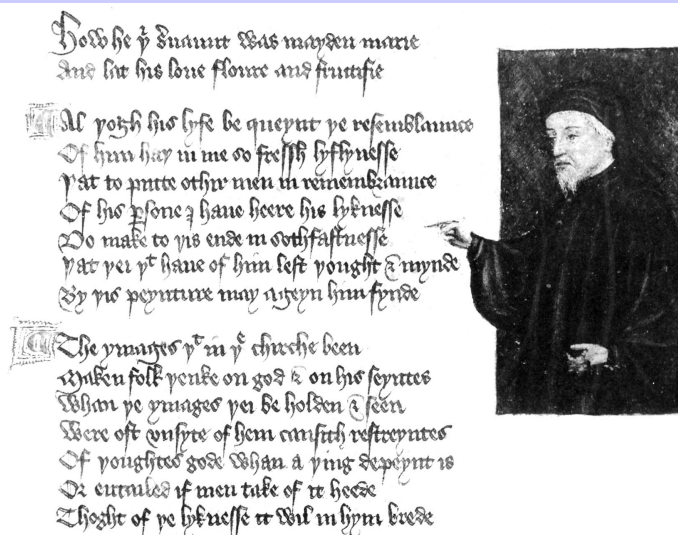 How he yͬ ẜuaunt was mayden marie
And lat his loue floure and fructifie
Al þogh his lyfe be queynt þe resemblaunce
Of him haþ in me so fressh lyflynesse
Þat to putte othir men in remembraunce
Of his ꝑsone I haue heere his lyknesse
Do make to þis ende in sothfastnesse
Þat þei þͭ haue of him left þought & mynde
By þis peynture may ageyn him fynde
The ymages þͭ in þͤ chirche been
Maken folk þenke on god & on his seyntes
Whan þe ymages þei be holden & seen
Were oft vnsyte of hem causith restreyntes
Of þoughtes gode whan a þing depeynt is
Or entailed if men take of it heede
Thoght of þe lyknesse it wil in hym brede